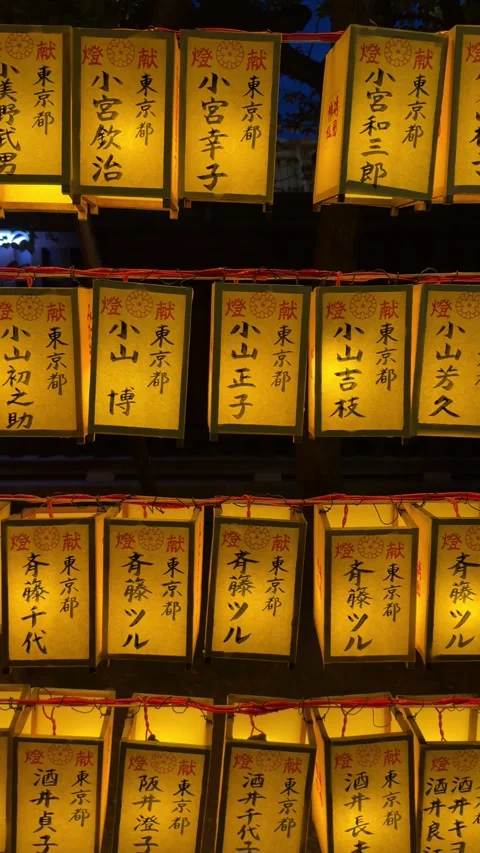 献燈
東京都
小美野武男
献燈
東京都
小宮欽治
献燈
東京都
小宮幸子
献燈
東京都
小宮和三郎
燈
献燈
東京都
小山初之助
献燈
東京都
小山博
献燈
東京都
小山正子
献燈
東京都
小山吉枝
献燈
東京都
小山芳久
献燈
東京都
斉藤千代
献燈
東京都
斉藤ツル
献燈
東京都
斉藤ツル
献燈
東京都
斉藤ツル
献燈
東京都
斉藤ツル
献燈
東京都
酒井貞子
献燈
東京都
阪井澄子
献燈
東京都
酒井千代子
献燈
東京都
酒井長
献燈
東京都
酒井キヨ
酒井良